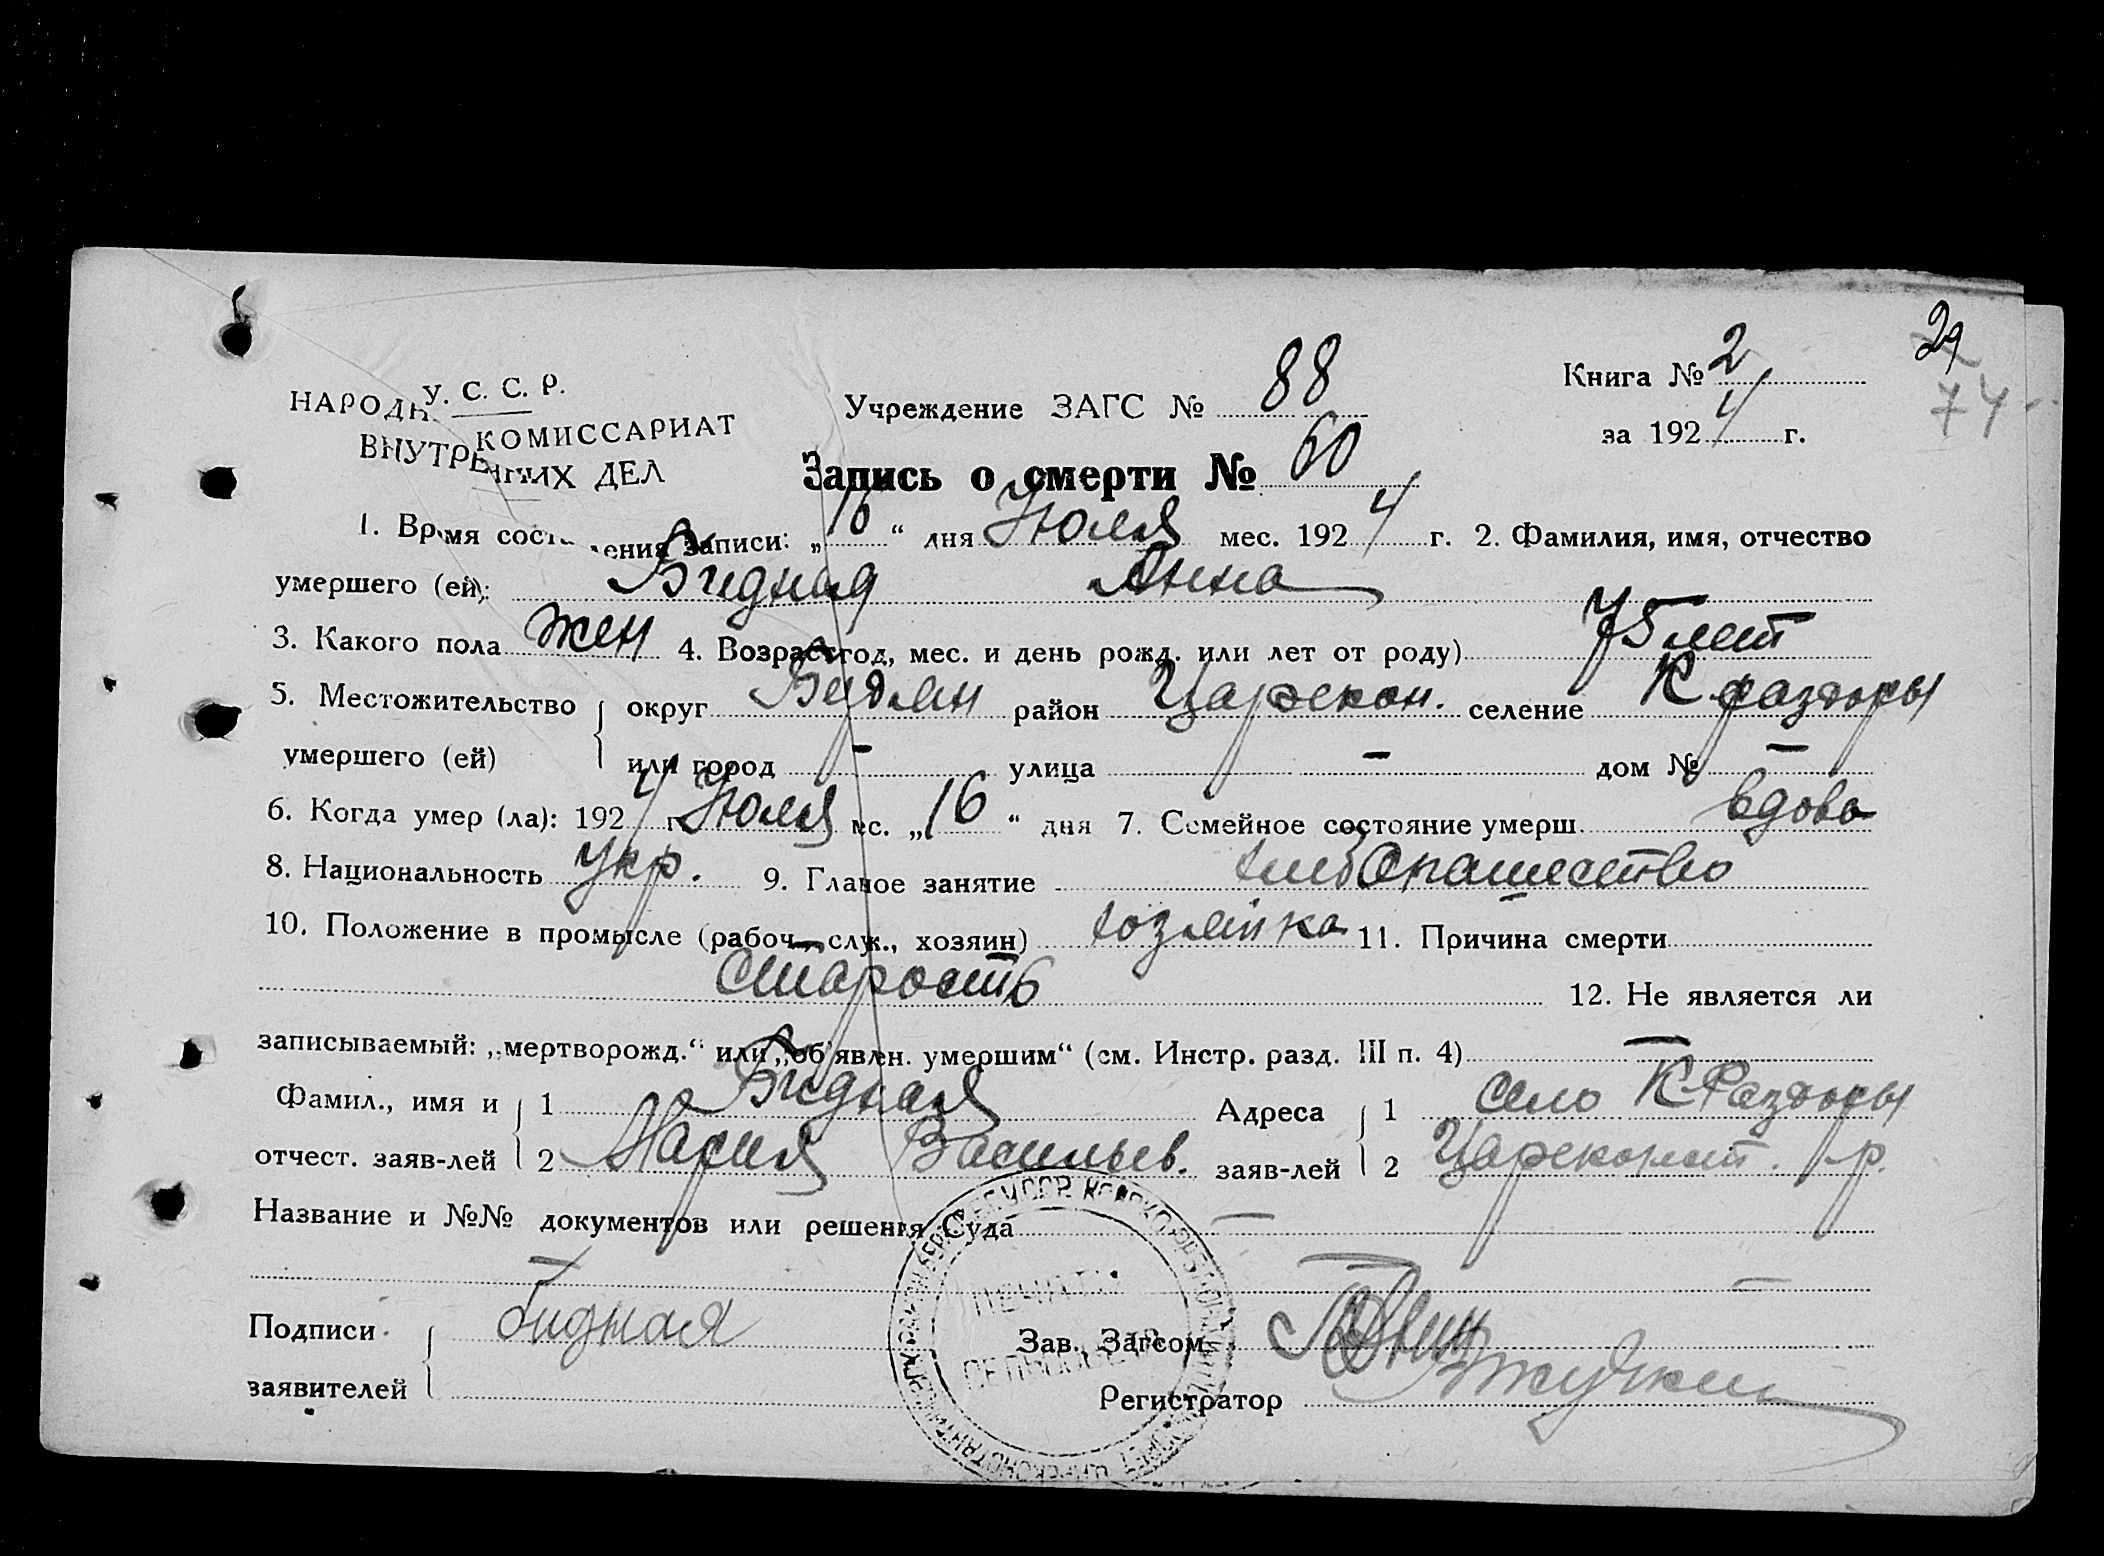 29
74
У. С. С. Р.
НАРОДН. КОМИССАРИАТ
ВНУТРЕННИХ ДЕЛ
Учреждение ЗАГС № 88
Книга № 2
за 1924 г.
Запись о смерти № 60
1. Время составления записи: „16“ дня Июля мес. 1924 г. 2. Фамилия, имя, отчество
умершего (ей): Бидная Анна
3. Какого пола жен 4. Возраст год, мес. и день рожд. или лет от роду) 75 лет
5. Местожительство округ Бердян район Царекон. селение К Раздоры
умершего (ей) или город — улица — дом № —
6. Когда умер (ла): 1924 г. Июля мс. „16“ дня 7. Семейное состояние умерш. вдова
8. Национальность Укр. 9. Главное занятие хлебопашество
10. Положение в промысле (рабоч., служ., хозяин) хозяйка 11. Причина смерти
старость 12. Не является ли
записываемый: „мертворожд.“ или „об'явлен. умершим“ (см. Инстр. разд. III п. 4) —
Фамил., имя и 1 Бидная Адреса 1 село К-Раздоры
отчест. заяв-лей 2 Мария Васильев. заяв-лей 2 Царекочст. р.
Название и №№ документов или решения Суда —
— —
Подписи бидная Зав. Загсом
заявителей Регистратор
ПЕЧАТЬ